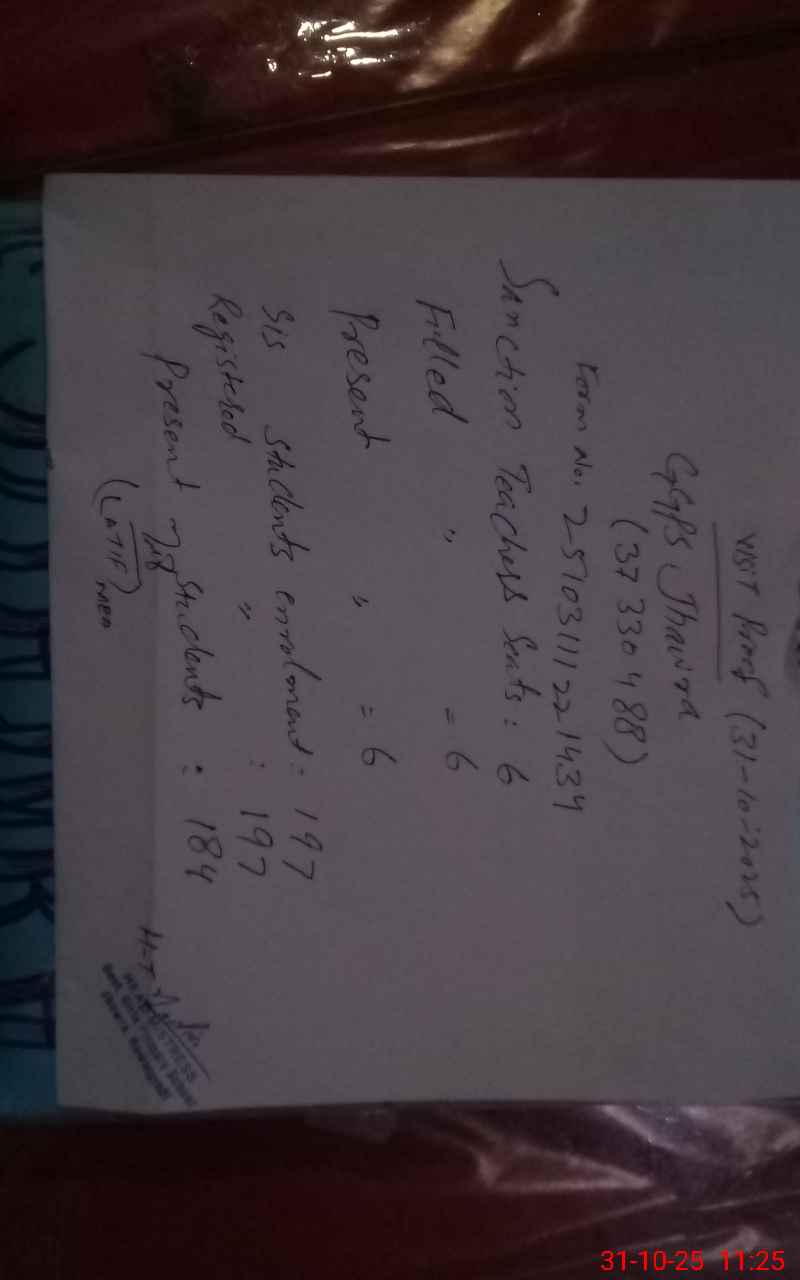 Visit Proof (31-10-2025)
GGPS Jhawra
(37330488)
Form No. 25103111221434
Sanction Teachers Seats : 6
Filled " = 6
Present " = 6
SIS Students enrolment : 197
Registered " : 197
Present Students : 184
(LATIF)
MEA
H-T
HEADMISTRESS
31-10-25 11:25